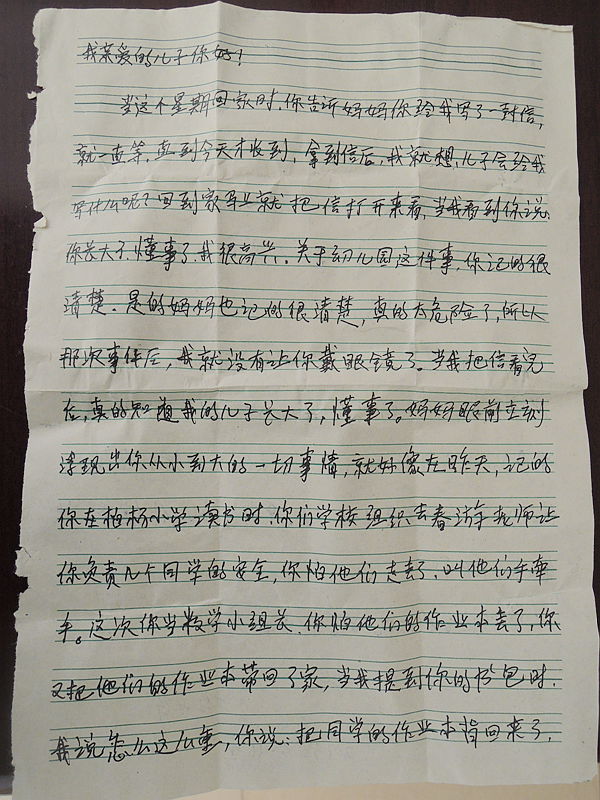 我亲爱的儿子你好！
当这个星期回家时，你告诉妈妈你给我写了一封信，
就一直等，直到今天才收到，拿到信后，我就想，儿子会给我
写什么呢？回到家毕业就把信打开来看，当我看到你说：
你长大了，懂事了，我很高兴。关于幼儿园这件事，你记的很
清楚，是的妈妈也记的很清楚，真的太危险了，所以
那次事件后，我就没有让你戴眼镜了。当我把信看完
后，真的知道我的儿子长大了，懂事了。妈妈眼前立刻
浮现出你从小到大的一切事情，就好像在昨天，记的
你在柏杨小学读书时，你们学校组织去春游，老师让
你负责几个同学的安全，你怕他们走丢了，叫他们手牵
手。这次你当数学小组长，你怕他们的作业本丢了，你
又把他们的作业本带回了家，当我提到你的书包时，
我说怎么这么重，你说：把同学的作业本背回来了，